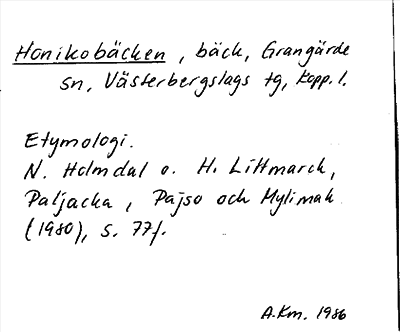 Honikobäcken, bäck, Grangärde
sn, Västerbergslags tg, Kopp. l.
Etymologi.
N. Holmdal o. H. Littmarck,
Paljacka, Pajso och Mylimak
(1980), s. 77f.
A.Km. 1986